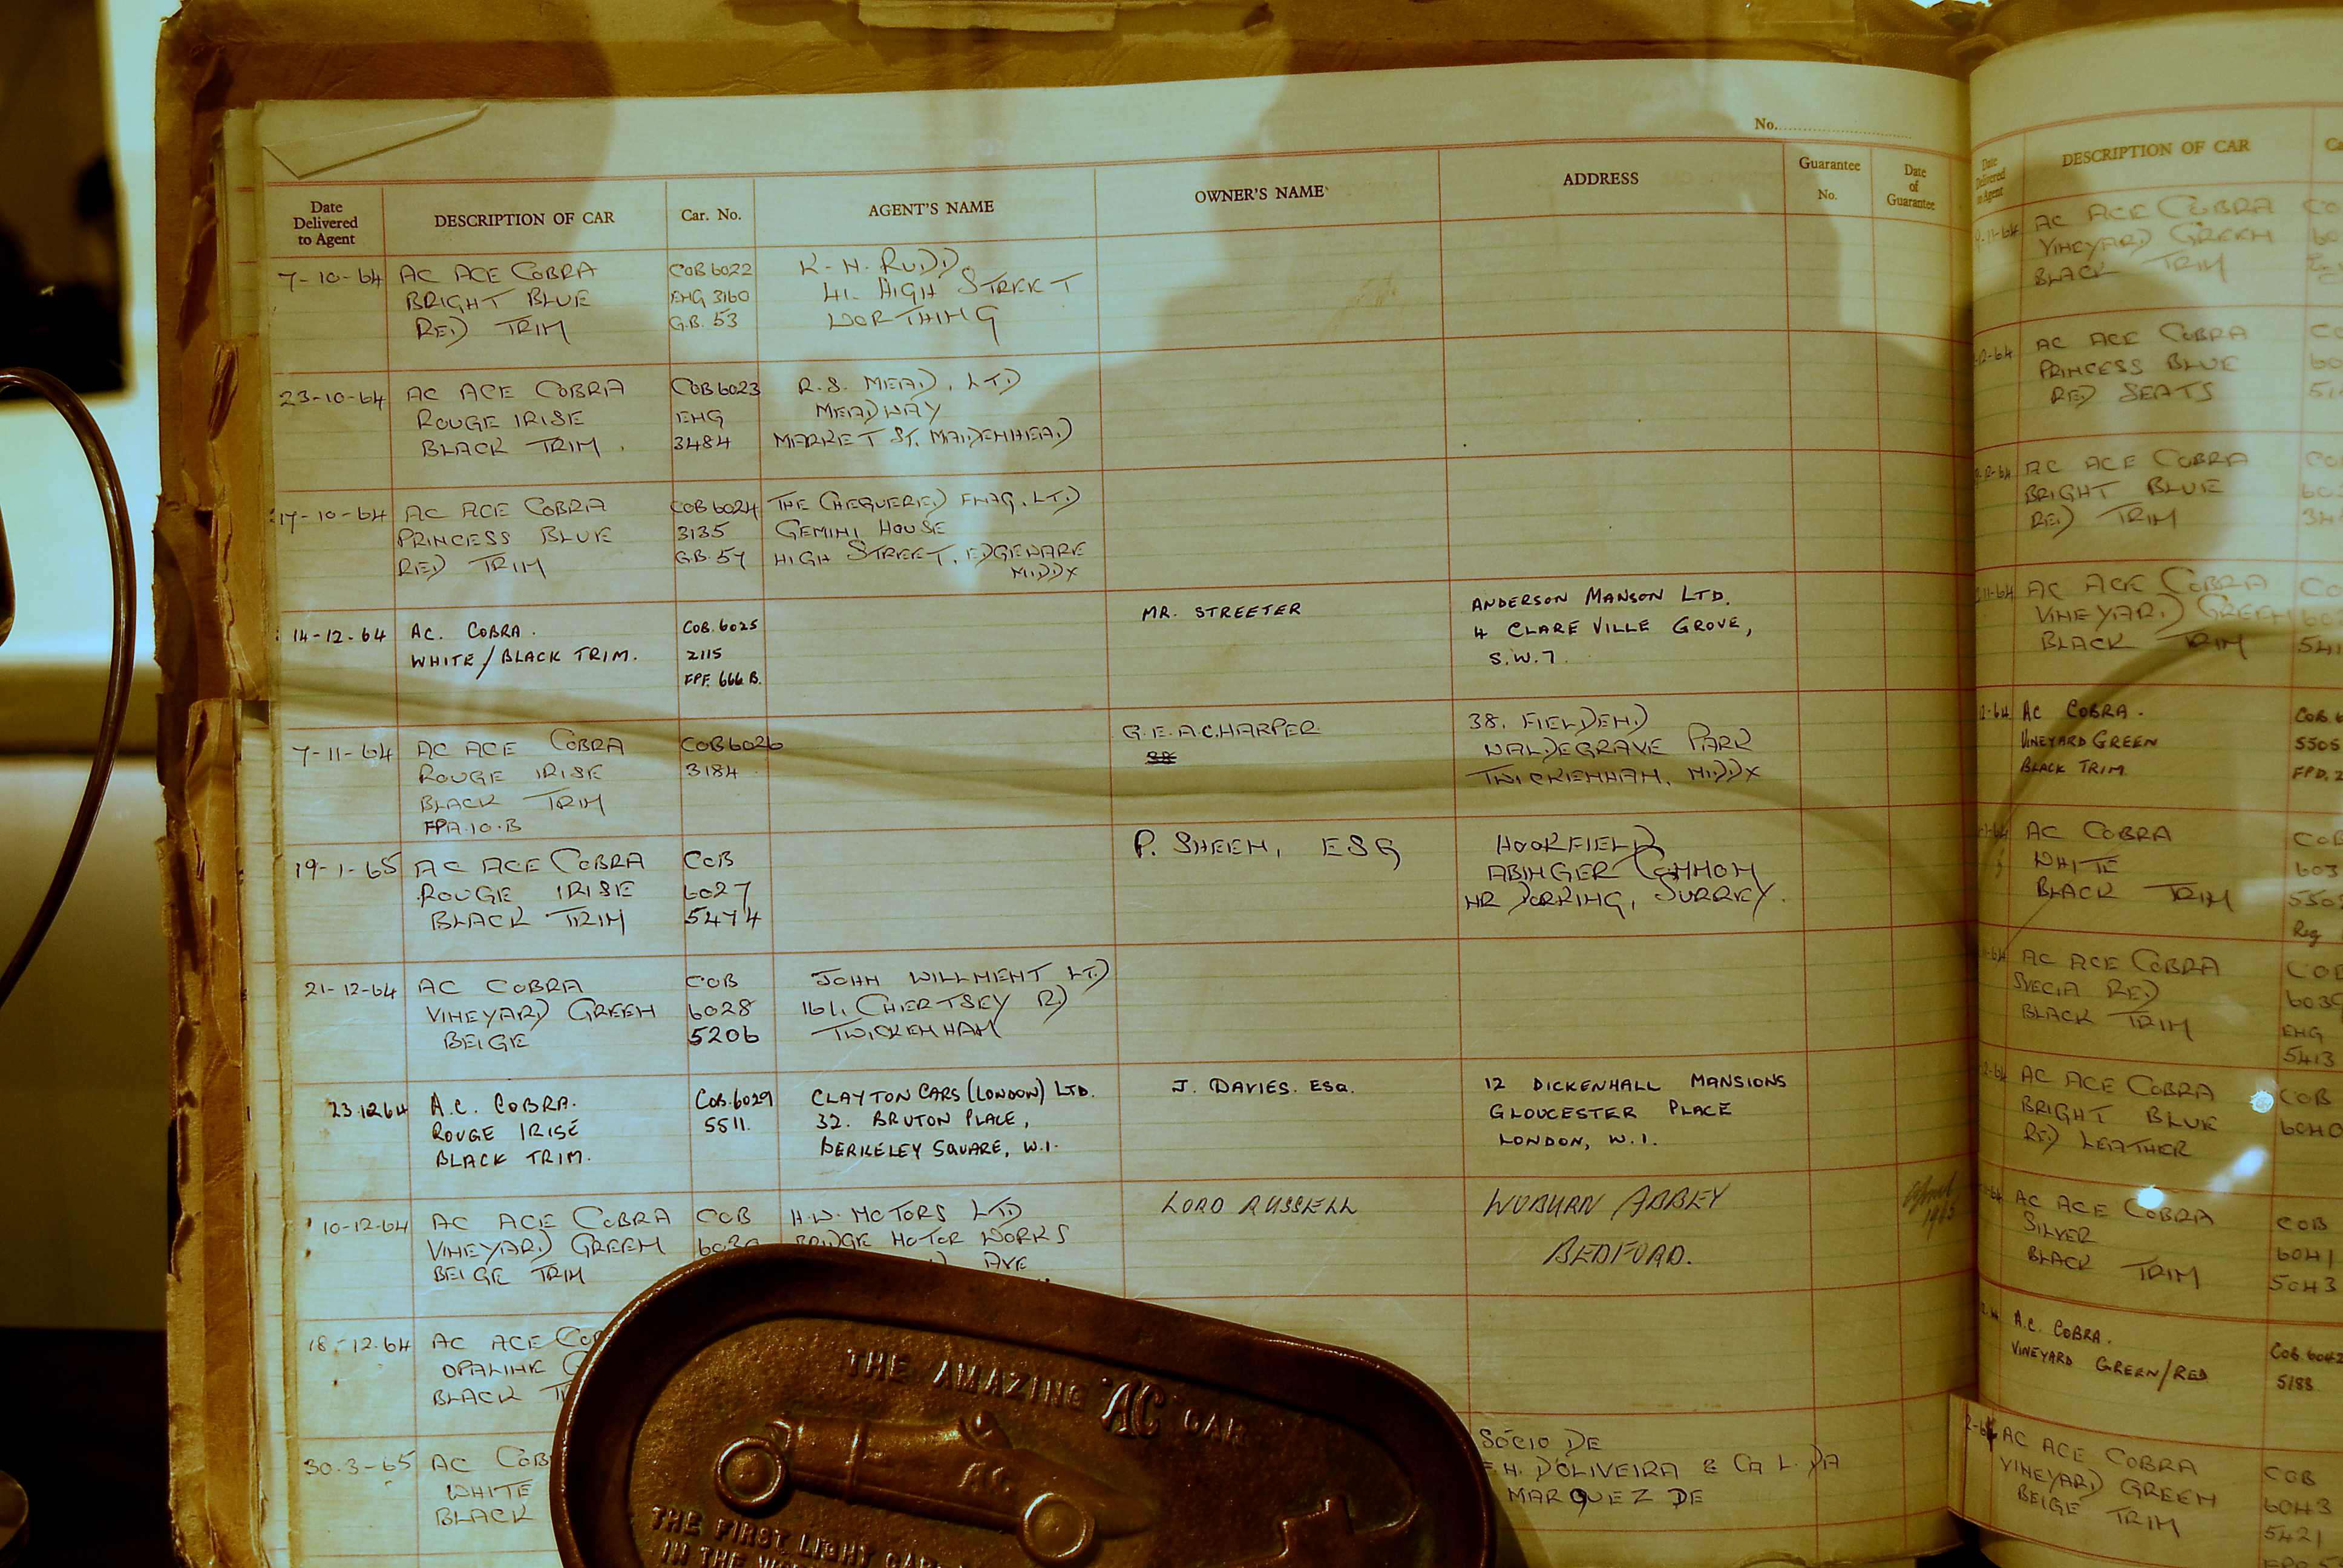 No.
Date
Delivered
to Agent
DESCRIPTION OF CAR
Car. No.
AGENT'S NAME
OWNER'S NAME
ADDRESS
Guarantee
No.
Date
of
Guarantee
7-10-64
AC ACE COBRA
BRIGHT BLUE
RED TRIM
COB 6022
ENG 3160
G.B. 53
K. N. RUDD.
41. HIGH STREET
WORTHING
23-10-64
AC ACE COBRA
ROUGE IRISE
BLACK TRIM.
COB 6023
ENG
3484
R.S. MEAD, LTD
MEADWAY
MARKET ST. MAIDENHEAD
17-10-64
AC ACE COBRA
PRINCESS BLUE
RED TRIM
COB 6024
3135
G.B. 57
THE CHEQUERED FLAG. LTD
GEMINI HOUSE
HIGH STREET. EDGEWARE
MIDDX
14-12-64
AC. COBRA.
WHITE/BLACK TRIM.
COB. 6025
2115
FPF. 666 B.
MR. STREETER
ANDERSON MANSON LTD.
4 CLARE VILLE GROVE,
S.W.7.
7-11-64
AC ACE COBRA
ROUGE IRISE
BLACK TRIM
FPA.10.B
COB 6026
3184
G.E.A.C.HARPER.
38. FIELDEND
WALDEGRAVE PARK
TWICKENHAM, MIDDX
19-1-65
AC ACE COBRA
ROUGE IRISE
BLACK TRIM
COB
6027
5474
P. SHEEN, ESQ
HOOKFIELD
ABINGER COMMON
NR DORKING, SURREY.
21-12-64
AC COBRA
VINEYARD GREEN
BEIGE
COB
6028
5206
JOHN WILLMENT LTD
161, CHERTSEY RD
TWICKENHAM
23.12.64
A.C. COBRA.
ROUGE IRISE
BLACK TRIM.
COB.6029
5511.
CLAYTON CARS (LONDON) LTD.
32. BRUTON PLACE,
BERKELEY SQUARE, W.1.
J. DAVIES. ESQ.
12 DICKENHALL MANSIONS
GLOUCESTER PLACE
LONDON, W.1.
10-12-64
AC ACE COBRA
VINEYARD GREEN
BEIGE TRIM
COB
H.W. MOTORS LTD
BRIDGE MOTOR WORKS
AVE
LORD RUSSELL
WOBURN ABBEY
BEDFORD.
18-12-64
AC ACE
BLACK
30-3-65
AC
WHITE
BLACK
SÓCIO DE
D'OLIVEIRA & CA L.DA
MARQUEZ DE
THE AMAZING "AC" CAR
A.C.
THE FIRST LIGHT CAR
IN THE
Date
Delivered
to Agent
DESCRIPTION OF CAR
AC ACE COBRA
VINEYARD GREEN
BLACK TRIM
AC ACE COBRA
PRINCESS BLUE
RED SEATS
AC ACE COBRA
BRIGHT BLUE
RED TRIM
AC ACE COBRA
VINEYARD GREEN
BLACK TRIM
AC COBRA.
VINEYARD GREEN
BLACK TRIM
5505
AC COBRA
WHITE
BLACK TRIM
Reg
AC ACE COBRA
SVECIA RED
BLACK TRIM
ENG
5413
AC ACE COBRA
BRIGHT BLUE
RED LEATHER
COB
6040
AC ACE COBRA
SILVER
BLACK TRIM
COB
6041
5043
A.C. COBRA.
VINEYARD GREEN/RED
COB.6042
5188
AC ACE COBRA
VINEYARD GREEN
BEIGE TRIM
COB
6043
5421